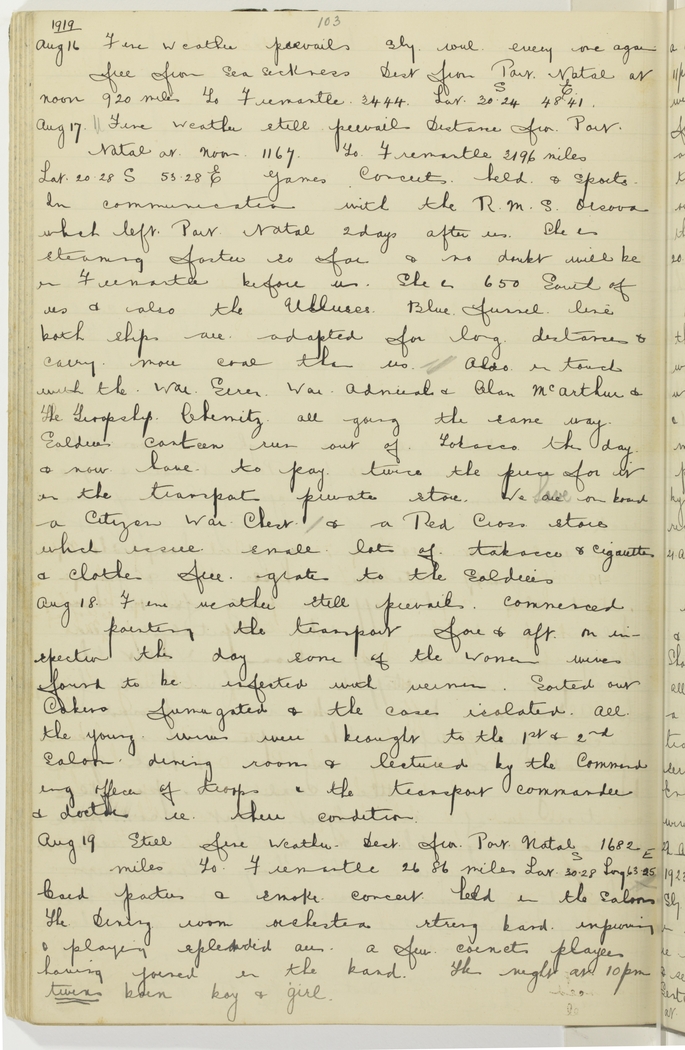 1919
103
Aug 16 Fine weather prevails Sly. wind. every one again
free from Sea Sickness Dist from Port. Natal at
noon 920 miles To Fremantle. 3444. Lat. 30.24 S 48.41 E.
Aug 17. Fine weather still prevails Distance from Port.
Natal at noon. 1167. To Fremantle 3196 miles
Lat. 20.28 S 53.28 E Games Concerts. held. & Sports.
In communication with the R.M.S. Orsova
which left. Port Natal 2 days after us. She is
steaming faster so far & no doubt will be
in Fremantle before us. She is 650 South of
us & also the Blue. funnel. line
both ships are. adapted for long. distances &
carry. more coal than us. // Also. in touch
with the. War. War. Admiral & Alan McArthur &
The Troopship. Chemnitz. all going the same way.
Soldiers canteen run out of. Tobacco this day.
& now. have. to pay. twice the price for it
in the transport private store. We have on board
a Citizen War. Chest. / & a Red Cross store
which issue. small lots of tobacco & cigarettes
& clothes free. gratis to the Soldiers
Aug 18. Fine weather still prevails. Commenced
painting the transport fore & aft. on in-
spection this day some of the women wives
found to be infested with vermin. Sorted out
fumigated & the cases isolated. All.
the young. wives were brought to the 1st & 2nd
Saloon. dining room & lectured by the Command
ing officer of troops & the transport commander
& doctor re. their condition.
Aug 19 Still fine weather. Dist. from. Port Natal 1682
miles To. Fremantle 2686 miles Lat. 30.28 S Long 63.25 E
Card parties & smoke. concert. held in the Saloon
The Dining room orchestra string band. improving
& playing splendid airs. a few cornets players
having joined in the band. This night at 10 pm
twins born boy & girl.